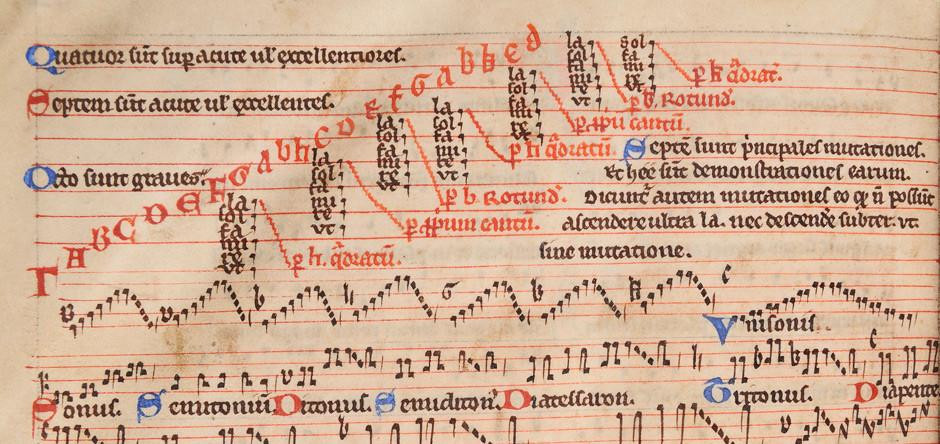 Quatuor sūt supacute ul' excellentiores.
Septem sūt acute ul' excellentes.
Octo sunt graues
Γ A B C D E F G a b h c d e f g a b h c d
la sol fa mi re ut
la sol fa mi re ut
la sol fa mi re ut
la sol fa mi re ut
la sol fa mi re ut
la sol fa mi re ut
sol fa mi re ut
p h q̄drat.
p b. Rotund'.
cantū.
p h q̄dratū.
p b. Rotund'.
cantū.
p h. q̄dratū.
Septē sunt p̄ncipales mutationes.
Et hee sūt demonstrationes earum.
Dicunt' autem mutationes eo q̄ n̄ possūt
ascendere ultra la. nec descende subter. vt.
sine mutatione.
Vnisonis
Tonus. Semitoniū Ditonus. Semiditon'. Diatessaron. Tritonus. Diapente